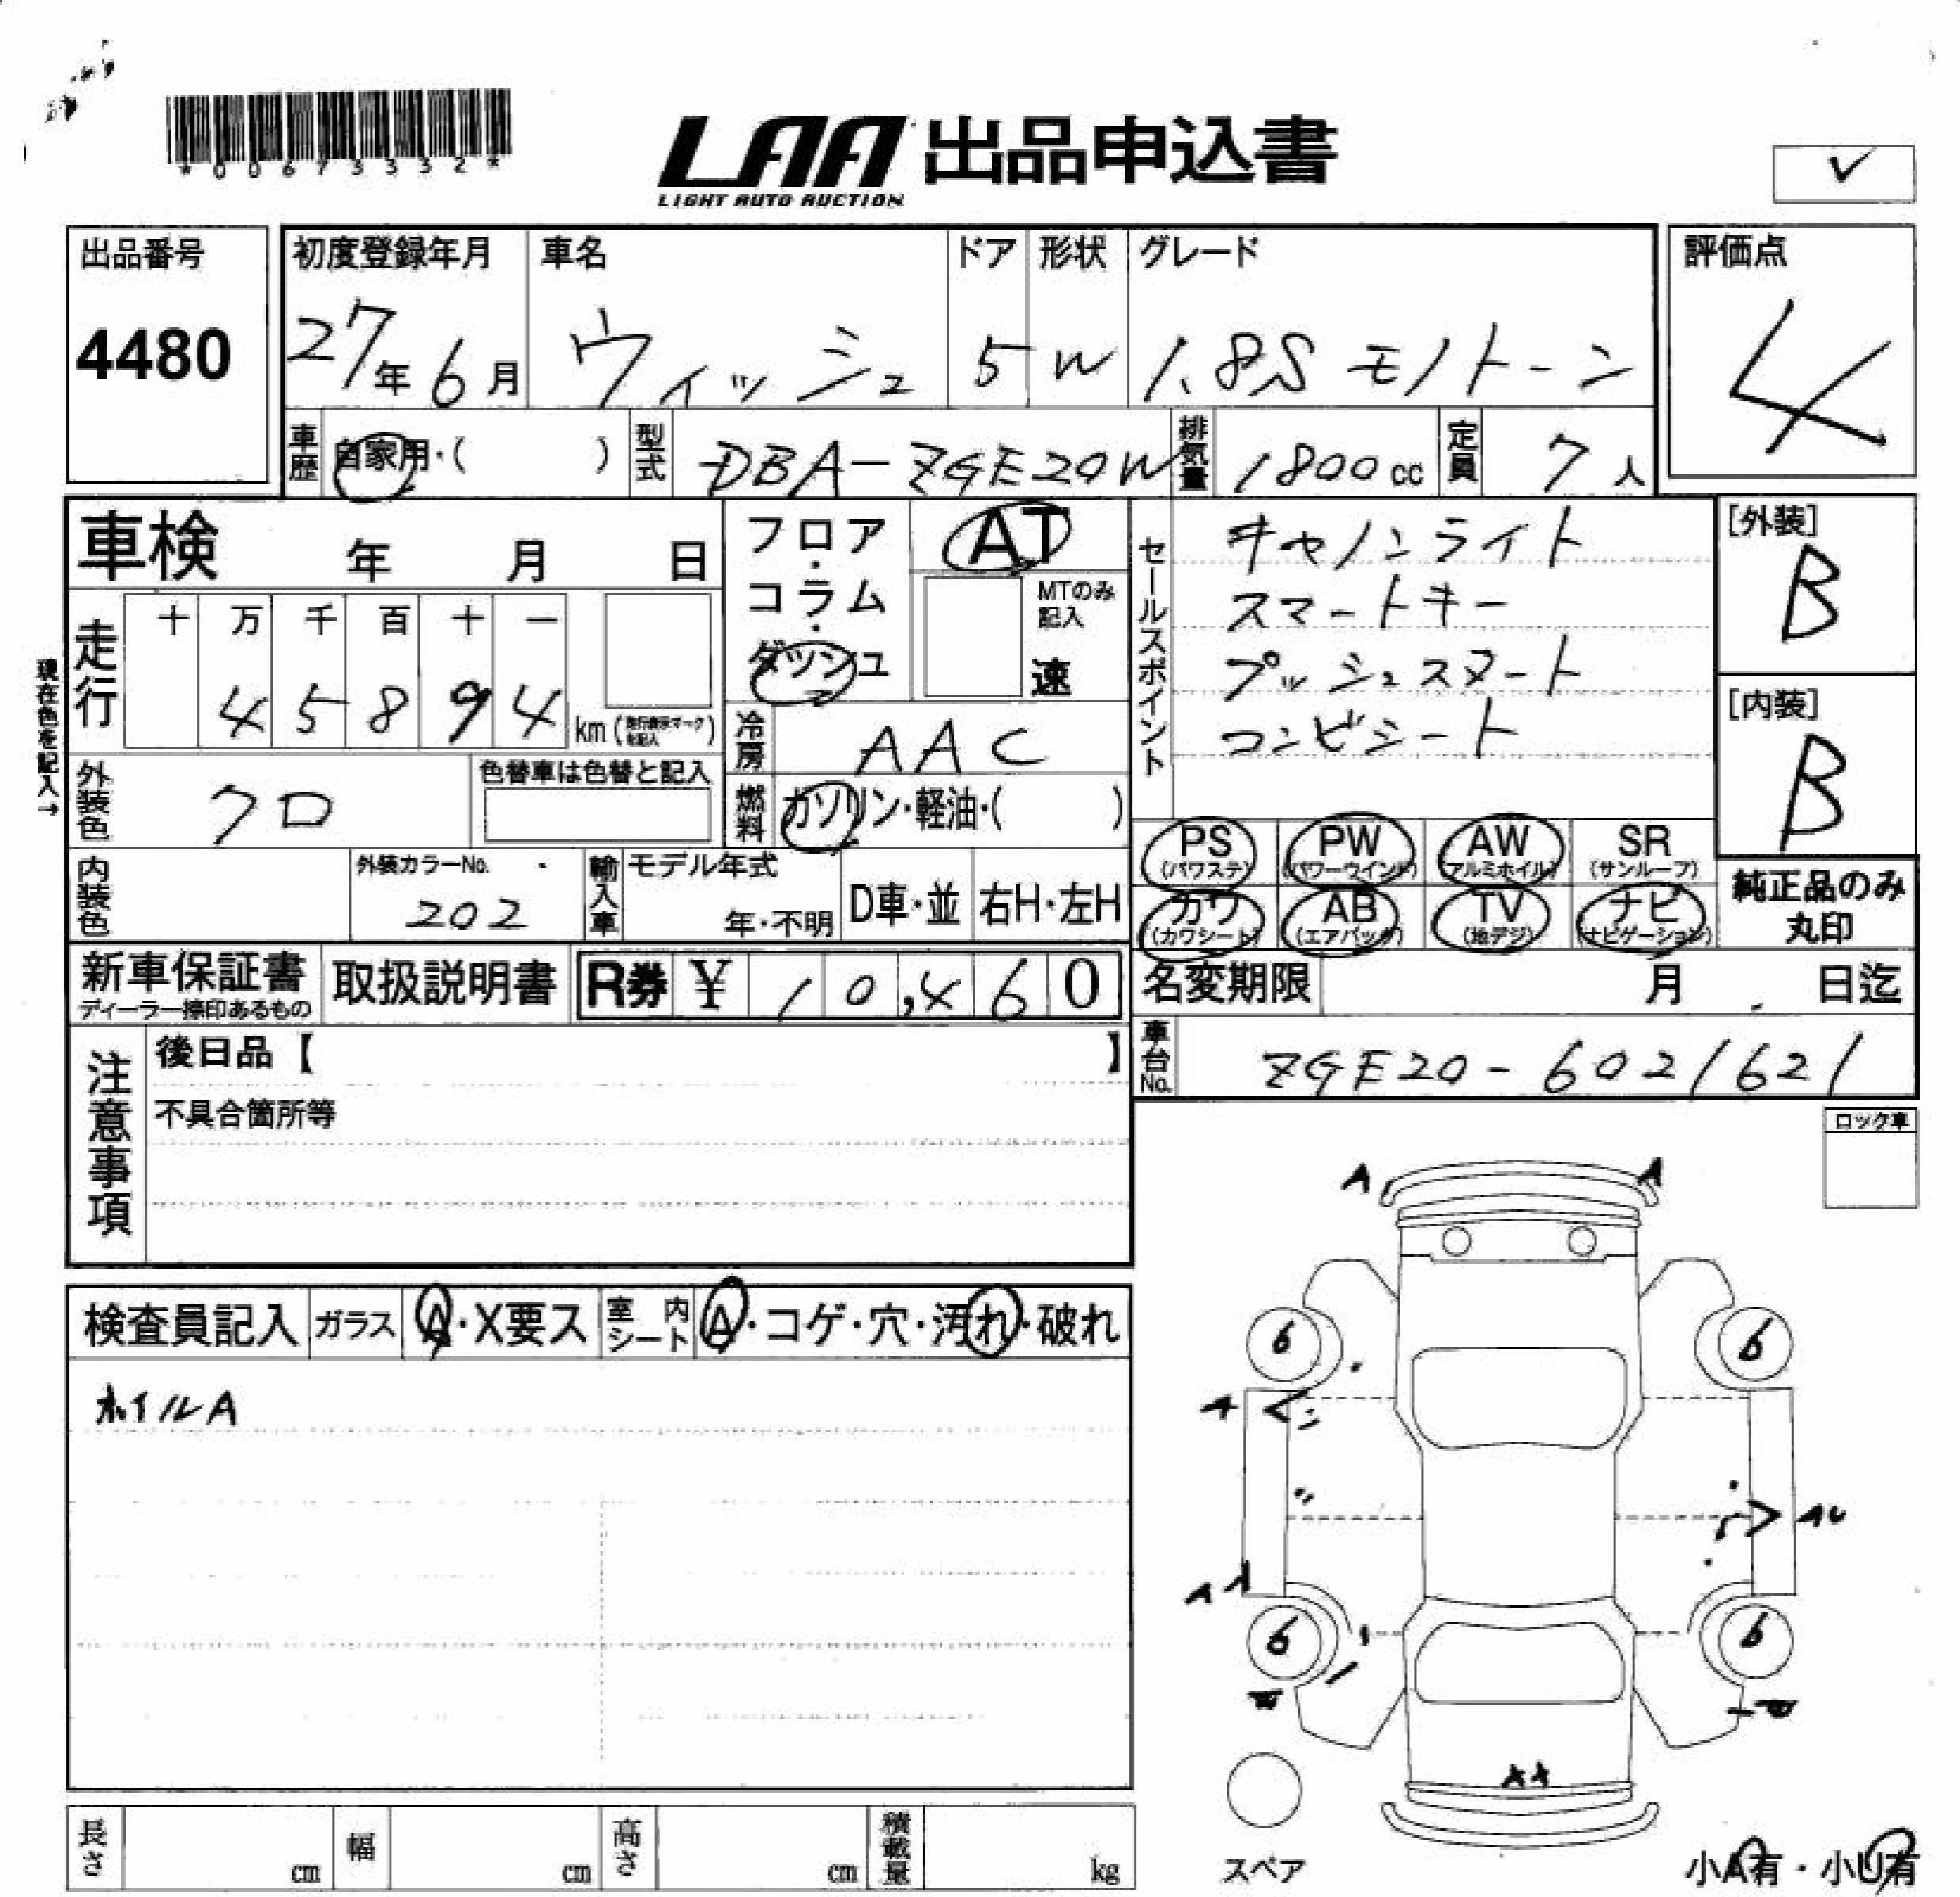 *00673332*
LAA 出品申込書
LIGHT AUTO AUCTION
✓
出品番号
4480
初度登録年月
27年6月
車名
ウィッシュ
ドア
5
形状
W
グレード
1.8S モノトーン
評価点
4
車歴
自家用・( )
型式
DBA-ZGE20W
排気量
1800cc
定員
7人
車検 年 月 日
フロア・コラム・ダッシュ
AT
MTのみ記入
速
セールスポイント
キャノンライト
スマートキー
プッシュスタート
コンビシート
[外装]
B
[内装]
B
現在色を記入→
走行
十 万 千 百 十 一
4 5 8 9 4
km(走行表示マークを記入)
冷房
AAC
外装色
クロ
色替車は色替と記入
燃料
ガソリン・軽油・( )
PS (パワステ)
PW (パワーウインド)
AW (アルミホイル)
SR (サンルーフ)
カワ (カワシート)
AB (エアバッグ)
TV (地デジ)
ナビ (ナビゲーション)
純正品のみ丸印
内装色
外装カラーNo.
202
輸入車
モデル年式
年・不明
D車・並
右H・左H
新車保証書
ディーラー捺印あるもの
取扱説明書
R券 ¥ 10,460
名変期限 月 日迄
車台No.
ZGE20-6021621
注意事項
後日品【 】
不具合箇所等
ロック車
A A
検査員記入
ガラス
A・X要ス
室内シート
A・コゲ・穴・汚れ・破れ
ホイルA
6 6
A
A
6 6
スペア
小A有・小U有
長さ cm
幅 cm
高さ cm
積載量 kg